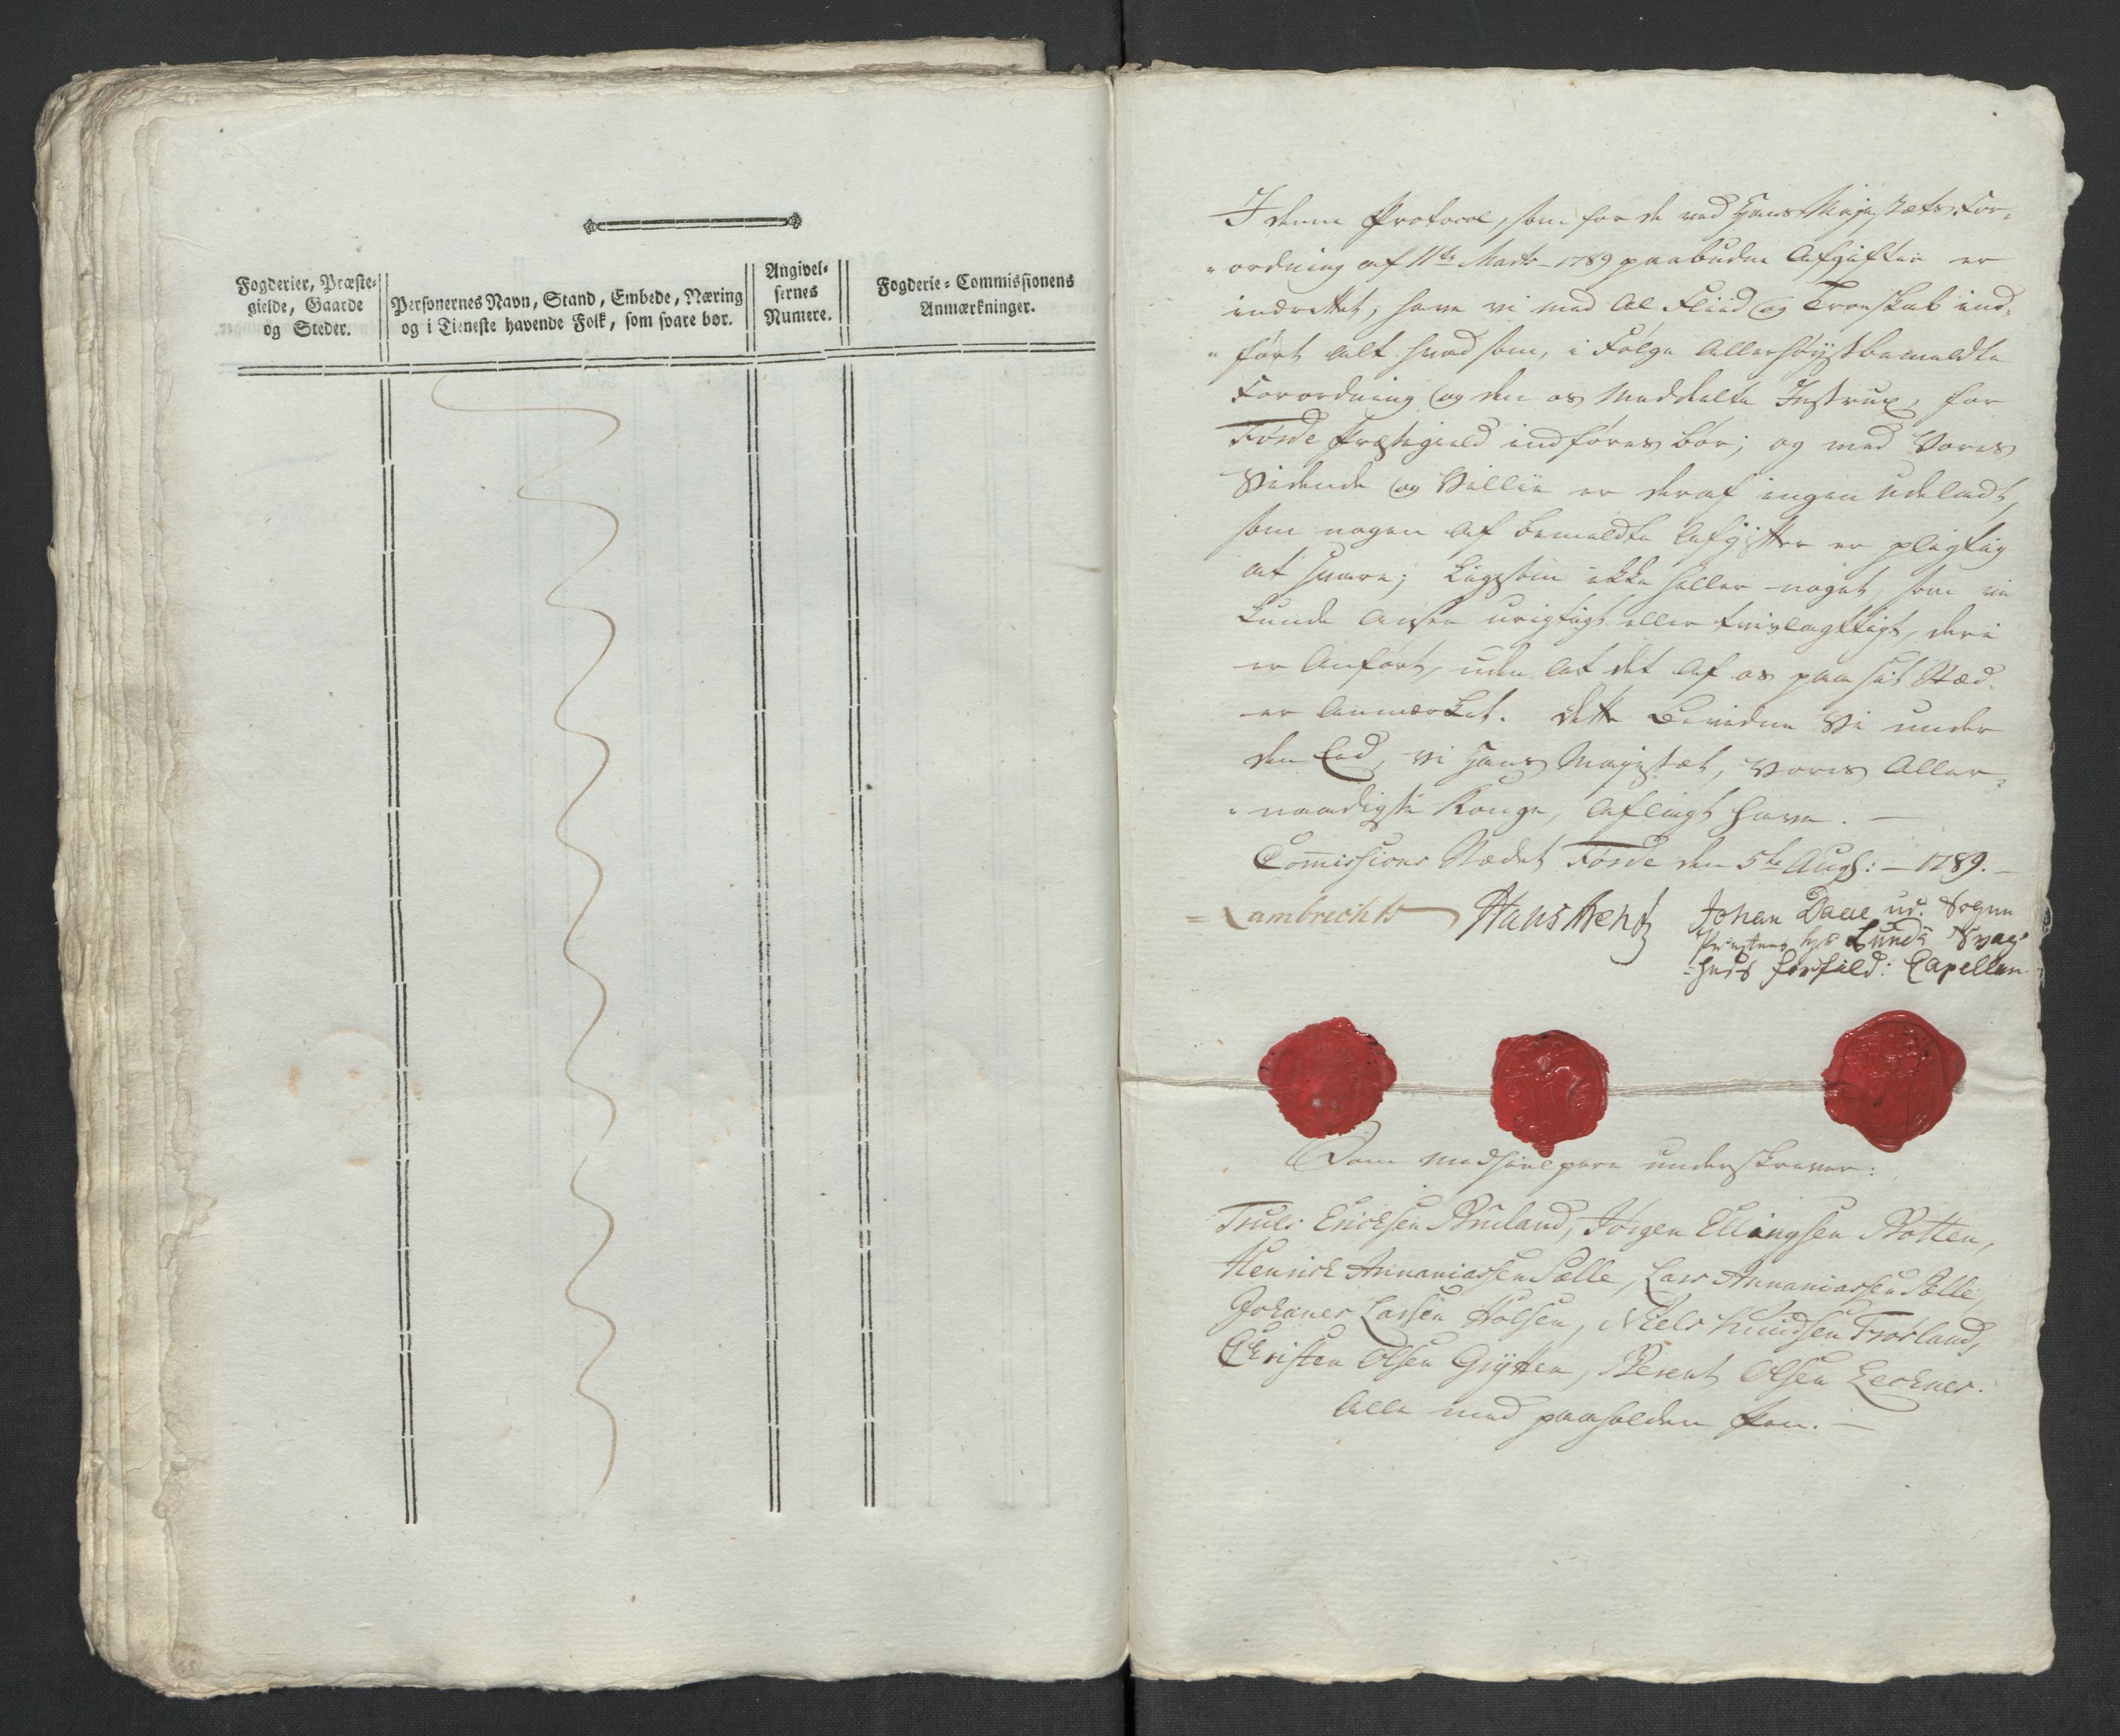 Fogderier, Præste-
gielde, Gaarde
og Steder.
Personernes Navn, Stand, Embede, Næring
og i Tieneste havende Folk, som svare bør.
Angivel-
sernes
Numere.
Fogderie-Commissionens
Anmærkninger.
I denne Protocol, som for de ved Hans Majestæts For-
ordning af 11te Marts 1789 paabudne Afgifter er
indrettet, have vi med Al Fliid og Troeskab ind-
ført alt hvad som, i Følge Allerhøystbemeldte
Forordning og den os Meddeelte Instrux, for
Førde Præstegield indføres bør; og med Vores
Vidende og Villie er deraf ingen udeladt,
som nogen Af bemeldte Afgifter er pligtig
at svare; Ligesom ikke heller noget, som vi
kunde Ansee urigtigt eller tvivlagtigt, deri
er Anført, uden at det Af os paa sit Stæd
er Anmærket. Dette Bevidne Vi under
den Eed, vi Hans Majestæt, Vores Aller-
naadigste Konge, Aflagt have. —
Commissions Stædet Førde den 5te Aug: — 1789. —
Lambrechts Hans
Johan Daae
Capellan
Som Medhielpere underskrever:
Truls Ericksen Bruland, Jørgen Ellingsen Botten,
Henrick Annaniassen Sælle, Lars Annaniassen Sælle,
Johanes Larsen Holsen, Niels Knudsen
Christen Olsen Grytten, Berent Olsen
Alle med paaholden Pen. —